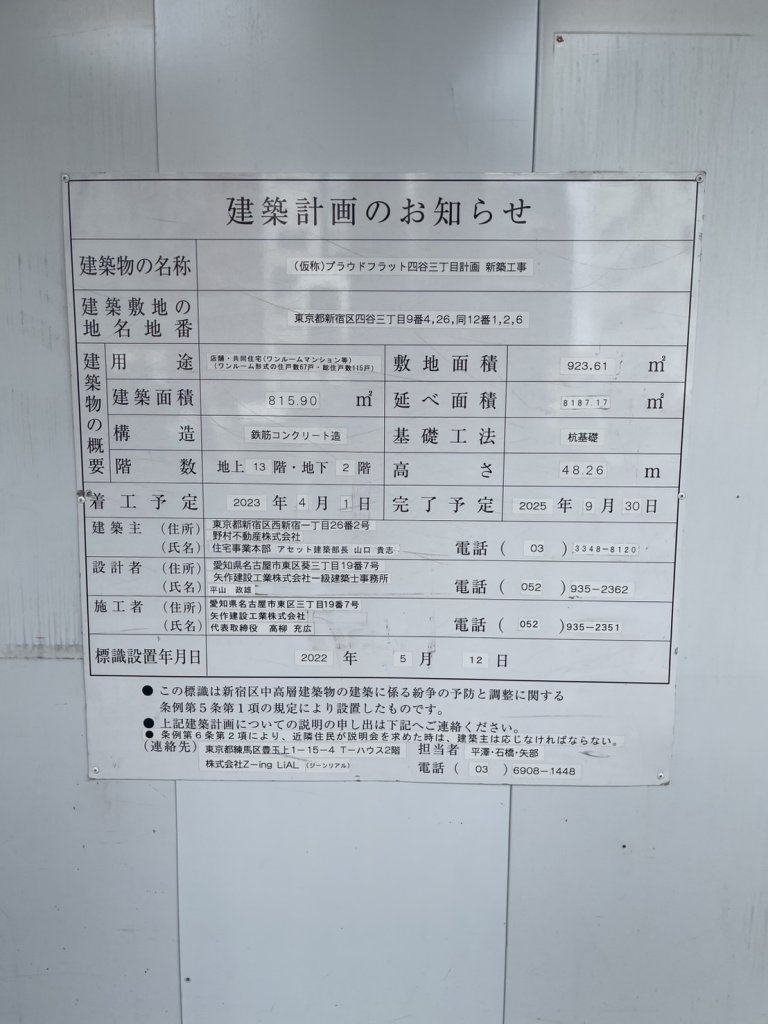 建築計画のお知らせ
建築物の名称 （仮称）プラウドフラット四谷三丁目計画 新築工事
建築敷地の地名地番 東京都新宿区四谷三丁目9番4,26,同12番1,2,6
建築物の概要
用途 店舗・共同住宅(ワンルームマンション等)
(ワンルーム形式の住戸数67戸・総住戸数115戸)
敷地面積 923.61 ㎡
建築面積 815.90 ㎡ 延べ面積 8187.17 ㎡
構造 鉄筋コンクリート造 基礎工法 杭基礎
階数 地上 13 階・地下 2 階 高さ 48.26 m
着工予定 2023 年 4 月 1 日 完了予定 2025 年 9 月 30 日
建築主 （住所） 東京都新宿区西新宿一丁目26番2号
野村不動産株式会社
（氏名） 住宅事業本部 アセット建築部長 山口 貴志 電話 （ 03 ） 3348-8120
設計者 （住所） 愛知県名古屋市東区葵三丁目19番7号
矢作建設工業株式会社一級建築士事務所
（氏名） 平山 政雄 電話 （ 052 ） 935-2362
施工者 （住所） 愛知県名古屋市東区三丁目19番7号
矢作建設工業株式会社
（氏名） 代表取締役 高柳 充広 電話 （ 052 ） 935-2351
標識設置年月日 2022 年 5 月 12 日
● この標識は新宿区中高層建築物の建築に係る紛争の予防と調整に関する
条例第5条第1項の規定により設置したものです。
● 上記建築計画についての説明の申し出は下記へご連絡ください。
● 条例第6条第2項により、近隣住民が説明会を求めた時は、建築主は応じなければならない。
（連絡先） 東京都練馬区豊玉上1-15-4 T-ハウス2階 担当者 平澤・石橋・矢部
株式会社Z-ing LiAL （ジーンリアル） 電話 （ 03 ） 6908-1448